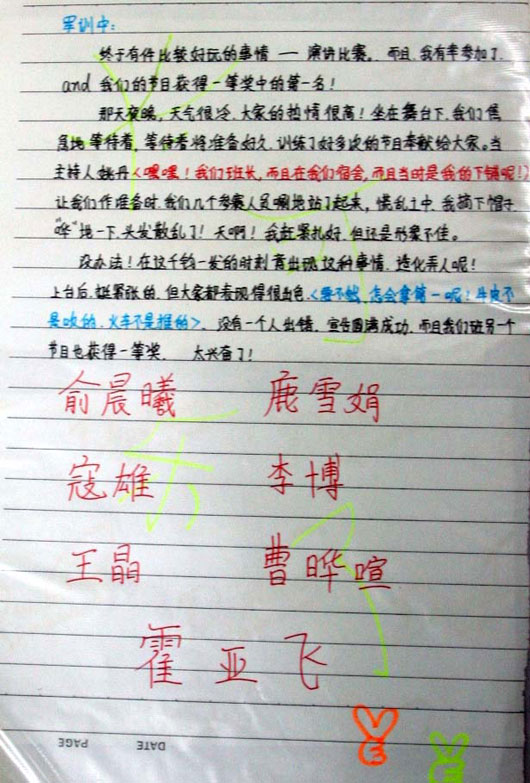 军训中:
终于有件比较好玩的事情 — 演讲比赛。而且,我有幸参加了,
and 我们的节目获得一等奖中的第一名!
那天夜晚,天气很冷,大家的热情很高!坐在舞台下,我们焦
急地等待着,等待着将准备好久,训练了好多次的节目奉献给大家。当
主持人姚丹<嘿嘿!我们班长,而且在我们宿舍,而且当时是我的下铺呢!>
让我们作准备时,我们几个参赛人员唰地站了起来,慌乱之中,我摘下帽子
"哗"地一下,头发散乱了!天啊!我赶紧扎好,但还是形象不佳。
没办法!在这千钧一发的时刻竟出现这种事情,造化弄人呢!
上台后,挺紧张的,但大家都表现得很出色,<要不然,怎会拿第一呢!牛皮不
是吹的,火车不是推的>,没有一个人出错,宣告圆满成功,而且我们班另一个
节目也获得一等奖, 太兴奋了!
俞晨曦 鹿雪娟
寇雄 李博
王晶 曹晔喧
霍亚飞
PAGE DATE